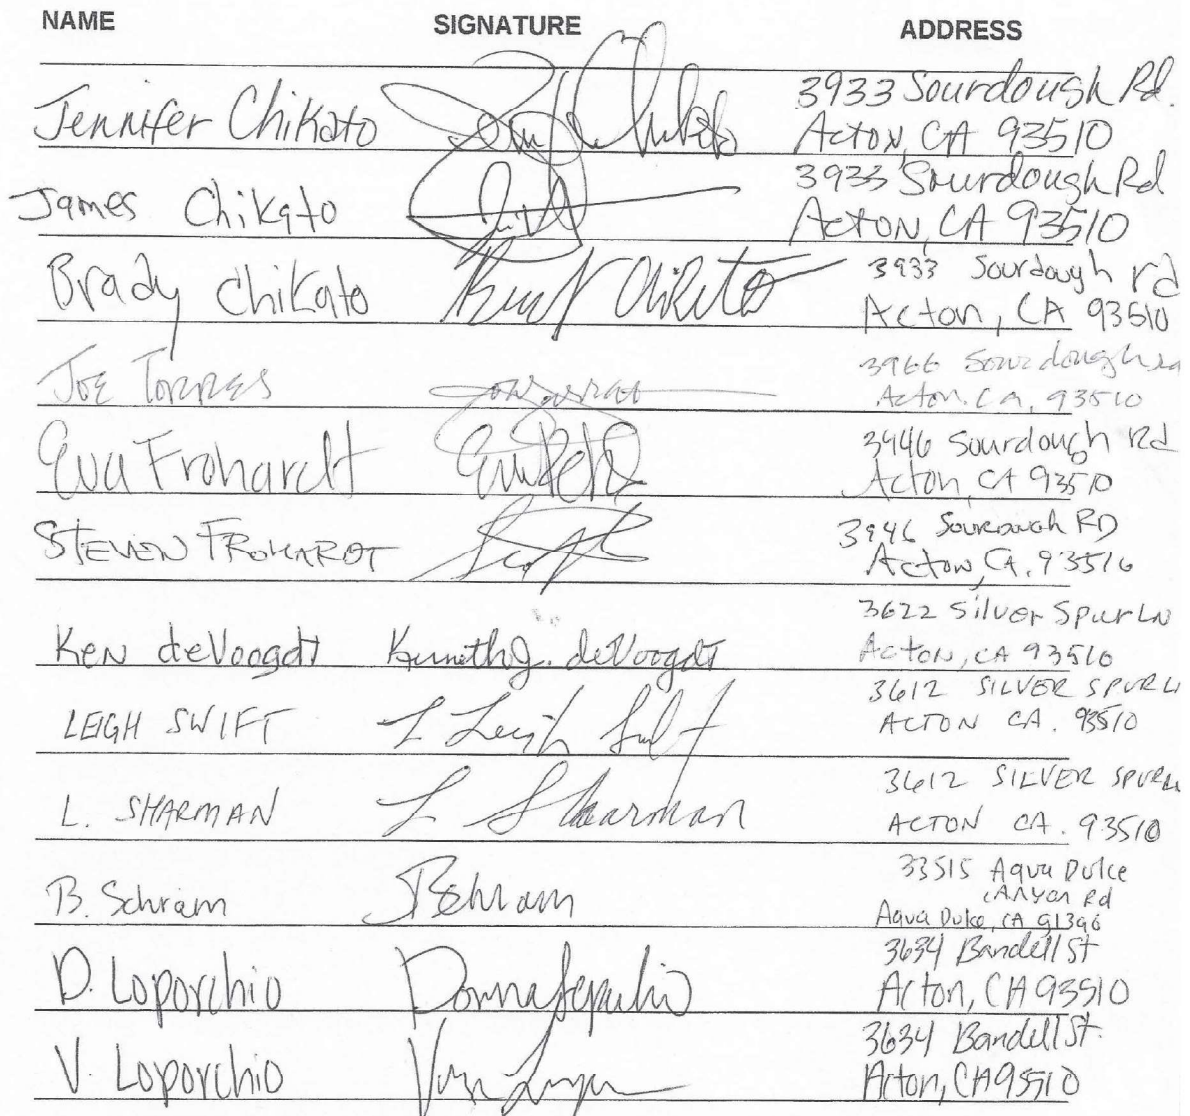 NAME SIGNATURE ADDRESS
Jennifer Chikato 3933 Sourdough Rd.
Acton, CA 93510
James Chikato 3933 Sourdough Rd
Acton, CA 93510
Brady Chikato Chikato 3933 Sourdough rd
Acton, CA 93510
Joe Torres 3966 Sourdough rd
Acton. Ca, 93510
Eva Frohardt 3946 Sourdough Rd
Acton, CA 93510
STEVEN FROHARDT 3946 Sourdough RD
Acton, CA. 93510
Ken deVoogdt Kenneth J. deVoogdt 3622 Silver Spur LN
Acton, CA 93510
LEIGH SWIFT L Leigh Swift 3612 SILVER SPUR
ACTON CA. 93510
L. SHARMAN L Sharman 3612 SILVER SPUR
ACTON CA. 93510
B. Schram BSchram 33515 Agua Dulce
Canyon Rd
Agua Dulce, CA 91390
D. Loporchio Donna Loporchio 3634 Bandell St
Acton, CA 93510
V. Loporchio 3634 Bandell St.
Acton, CA 93510